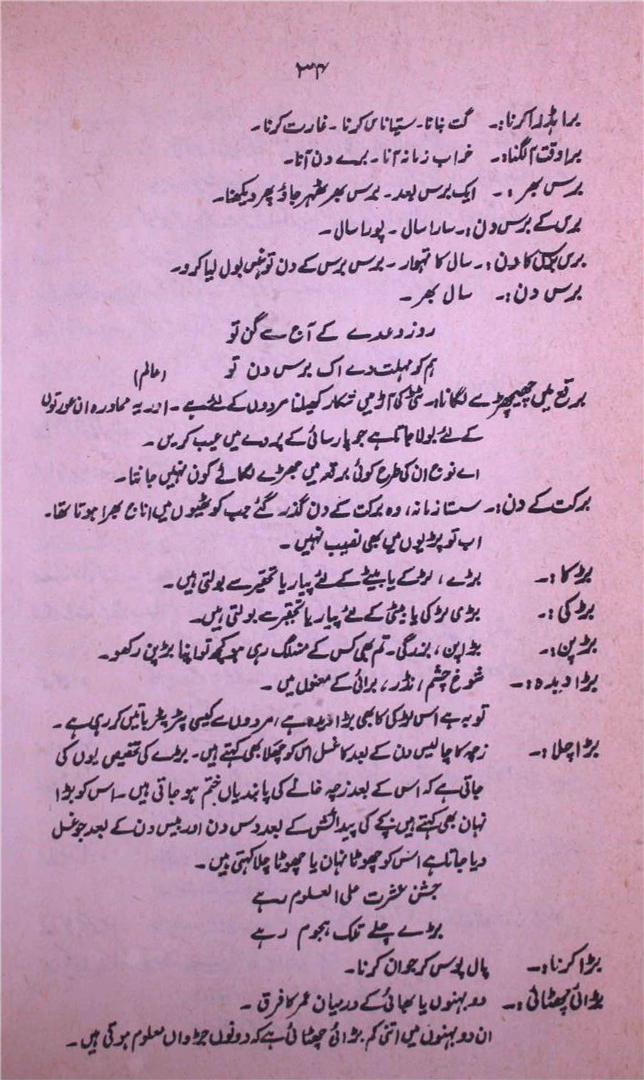 ۳۴
برا ہڈرا کرنا:۔ گت بنانا۔ ستیاناس کرنا۔ غارت کرنا۔
برا وقت آ لگنا:۔ خراب زمانہ آنا۔ برے دن آنا۔
برس بھر:۔ ایک برس بعد۔ برس بھر ٹھہر جاؤ پھر دیکھنا۔
برس کے برس دن:۔ سارا سال۔ پورا سال۔
برس کا دن:۔ سال کا تہوار۔ برس برس کے دن تو ہنس بول لیا کرو۔
برس دن:۔ سال بھر۔
روز وعدے کے آج سے گن تو
ہم کو مہلت دے اک برس دن تو (عالم)
برقع میں چھیچھڑے لگانا:۔ ٹٹی کی آڑ میں شکار کھیلنا مردوں کے لئے ہے۔ اور یہ محاورہ ان عورتوں
کے لئے بولا جاتا ہے جو پارسائی کے پردے میں عیب کریں۔
اے نوج ان کی طرح کوئی برقعہ میں چھیچھڑے لگائے کون نہیں جانتا۔
برکت کے دن:۔ سستا زمانہ، وہ برکت کے دن گذر گئے جب کوٹھیوں میں اناج بھرا ہوتا تھا۔
اب تو پڑیوں میں بھی نصیب نہیں۔
بڑکا:۔ بڑے، لڑکے یا بیٹے کے لئے پیار یا تحقیر سے بولتی ہیں۔
بڑکی:۔ بڑی لڑکی یا بیٹی کے لئے پیار یا تحقیر سے بولتی ہیں۔
بڑپن:۔ بڑاپن، بزرگی۔ تم بھی کس کے منہ لگ رہی ہو کچھ تو اپنا بڑپن رکھو۔
بڑا دیدہ:۔ شوخ چشم، نڈر، برائی کے معنوں میں۔
توبہ ہے اس لڑکی کا بھی بڑا دیدہ ہے، مردوں سے کیسی پٹر پٹر باتیں کر رہی ہے۔
بڑا چلا:۔ زچہ کا چالیس دن کے بعد کا غسل اس کو چھلا بھی کہتے ہیں۔ بڑے کی تخصیص یوں کی
جاتی ہے کہ اس کے بعد زچہ خانے کی پابندیاں ختم ہو جاتی ہیں۔ اس کو بڑا
نہان بھی کہتے ہیں بچے کی پیدائش کے بعد دس دن اور بیس دن کے بعد جو غسل
دیا جاتا ہے اس کو چھوٹا نہان یا چھوٹا چلا کہتی ہیں۔
جشن عشرت علی العلوم رہے
بڑے چلے تلک ہجوم رہے
بڑا کرنا:۔ پال پوس کر جوان کرنا۔
بڑائی چھٹائی:۔ دو بہنوں یا بھائی کے درمیان عمر کا فرق۔
ان دو بہنوں میں اتنی کم بڑائی چھٹائی ہے کہ دونوں جڑواں معلوم ہوتی ہیں۔